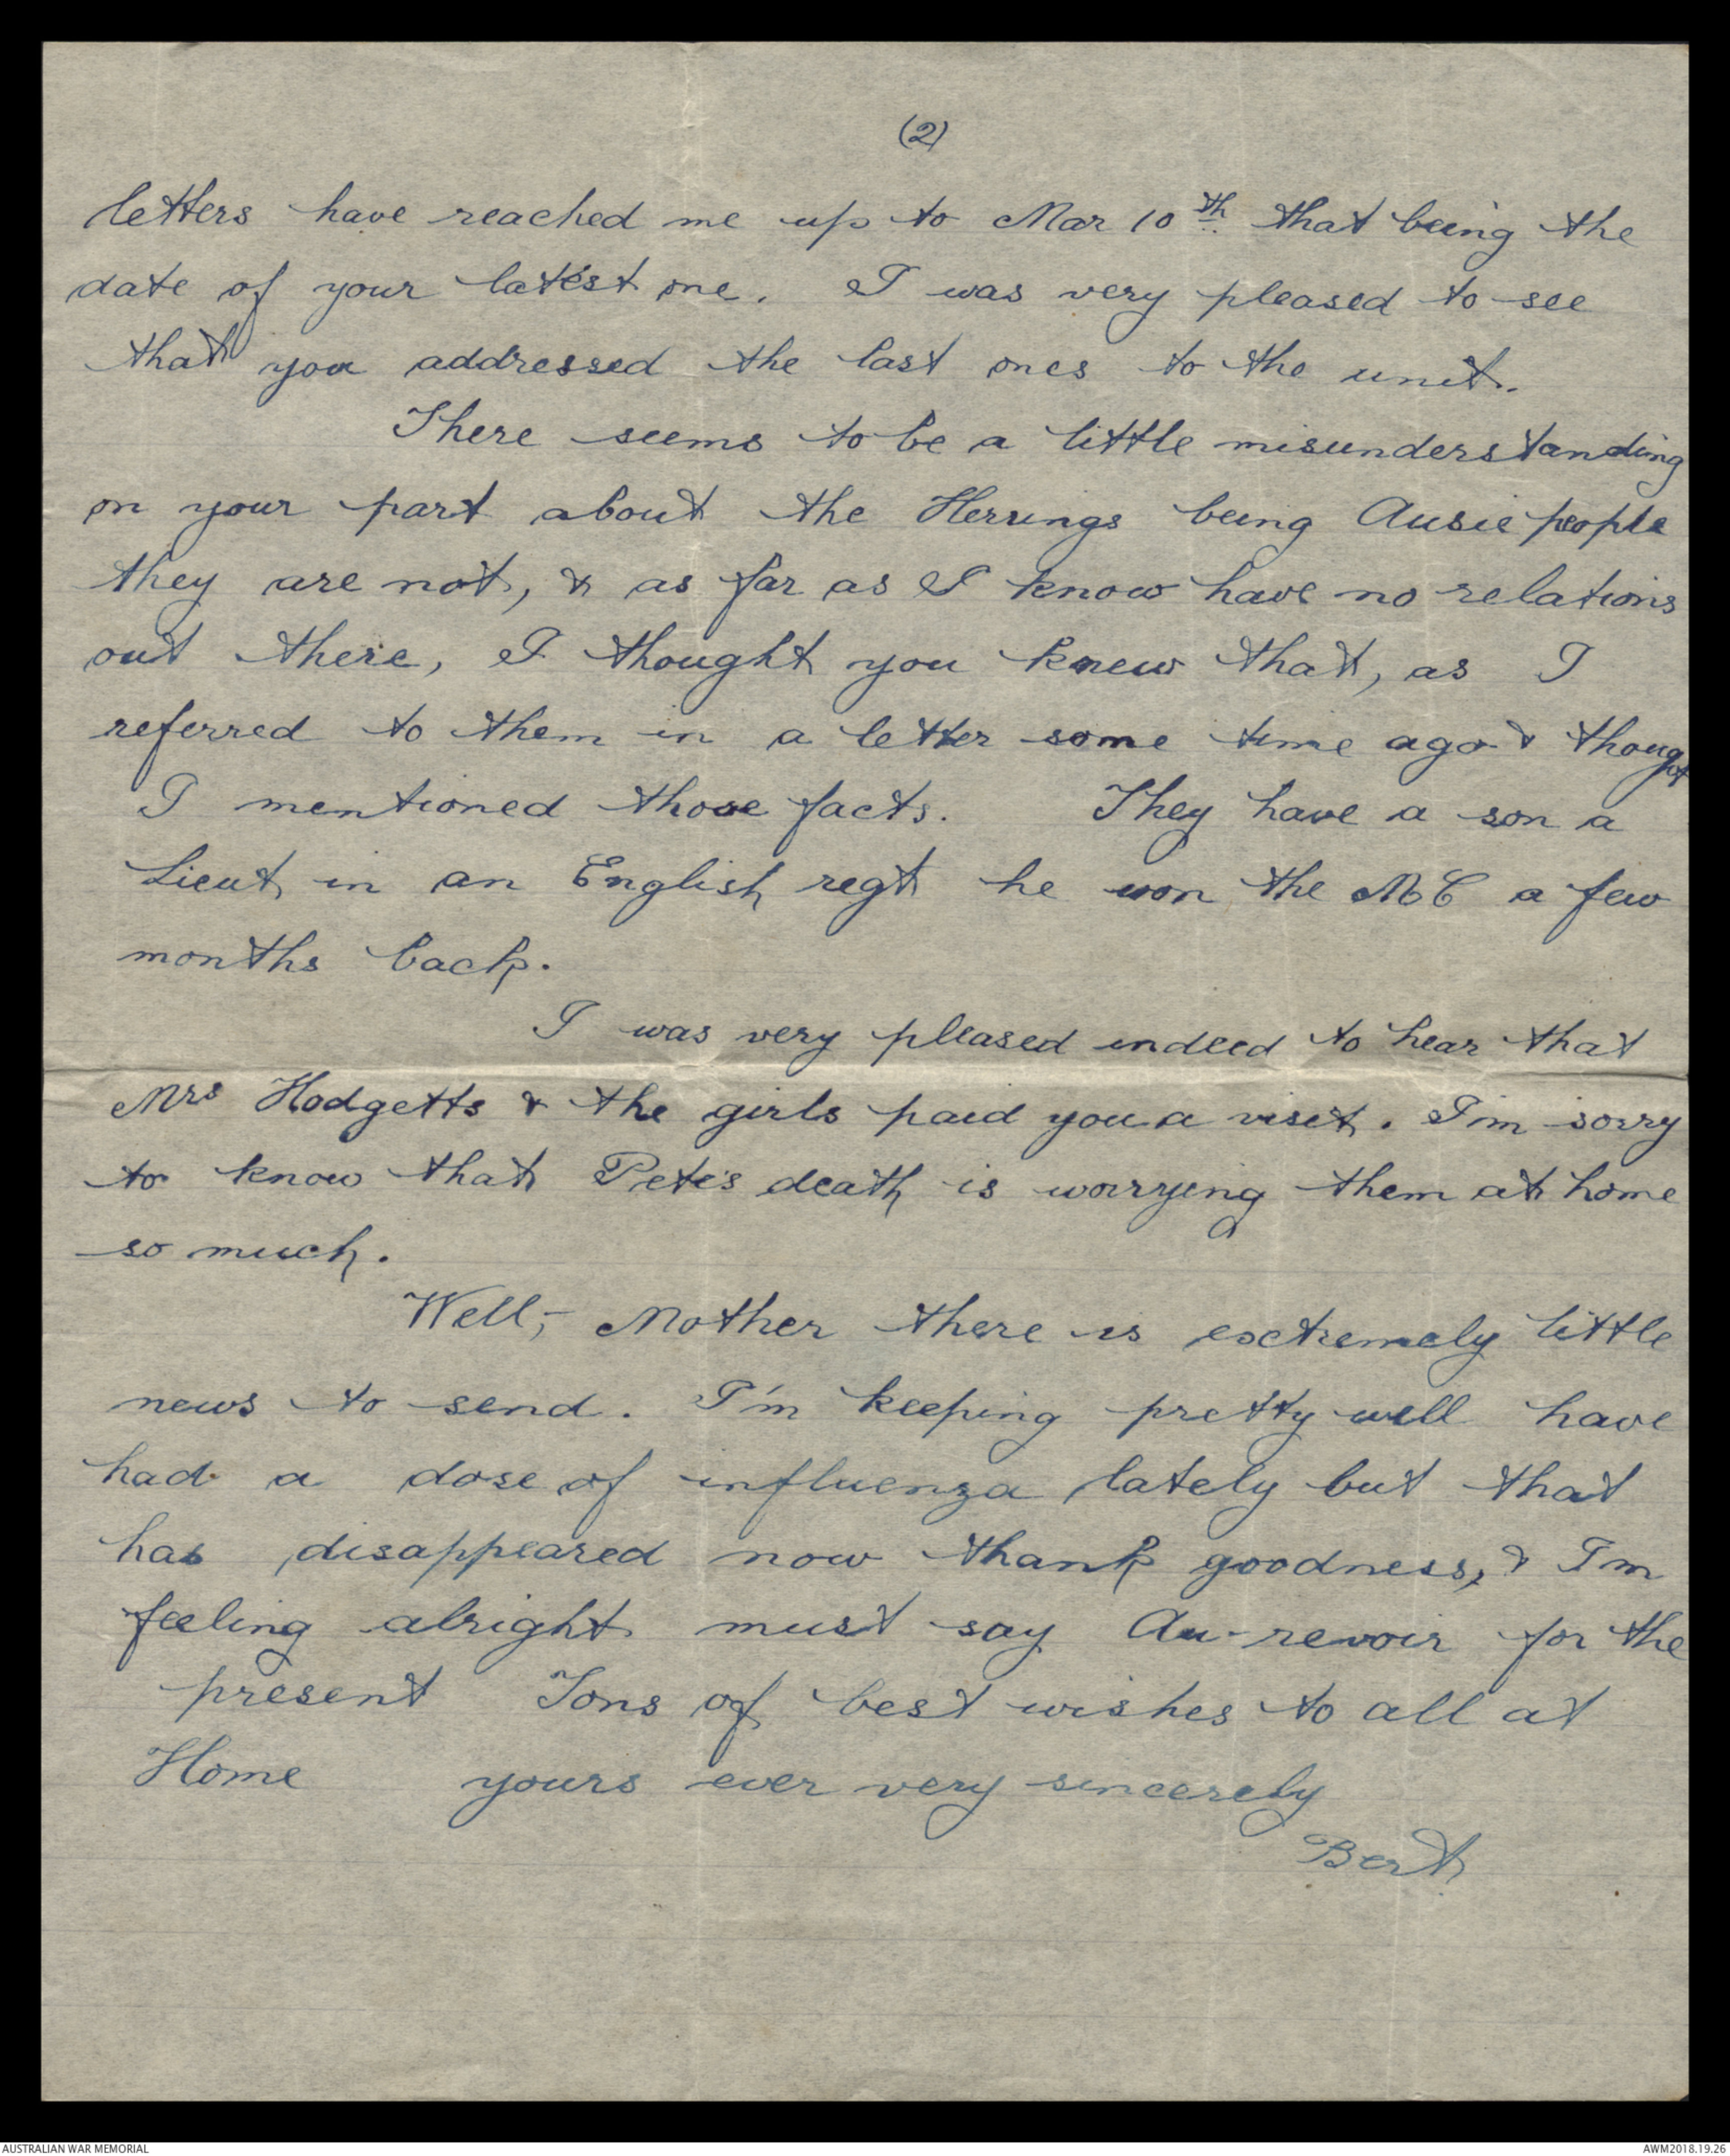 (2)
letters have reached me up to Mar 10th that being the
date of your latest one. I was very pleased to see
that you addressed the last ones to the unit.
There seems to be a little misunderstanding
on your part about the Herrings being Ausie people
they are not, & as far as I know have no relations
out there, I thought you knew that, as I
referred to them in a letter some time ago & thought
I mentioned those facts. They have a son a
Lieut in an English regt he won the MC a few
months back.
I was very pleased indeed to hear that
Mrs Hodgetts & the girls paid you a visit. I'm sorry
to know that Pete's death is worrying them at home
so much.
Well,- Mother there is extremely little
news to send. I'm keeping pretty well have
had a dose of influenza lately but that
has disappeared now thank goodness, & I'm
feeling alright must say Au-revoir for the
present Tons of best wishes to all at
Home yours ever very sincerely
Bert
AUSTRALIAN WAR MEMORIAL
AWM2018.19.26